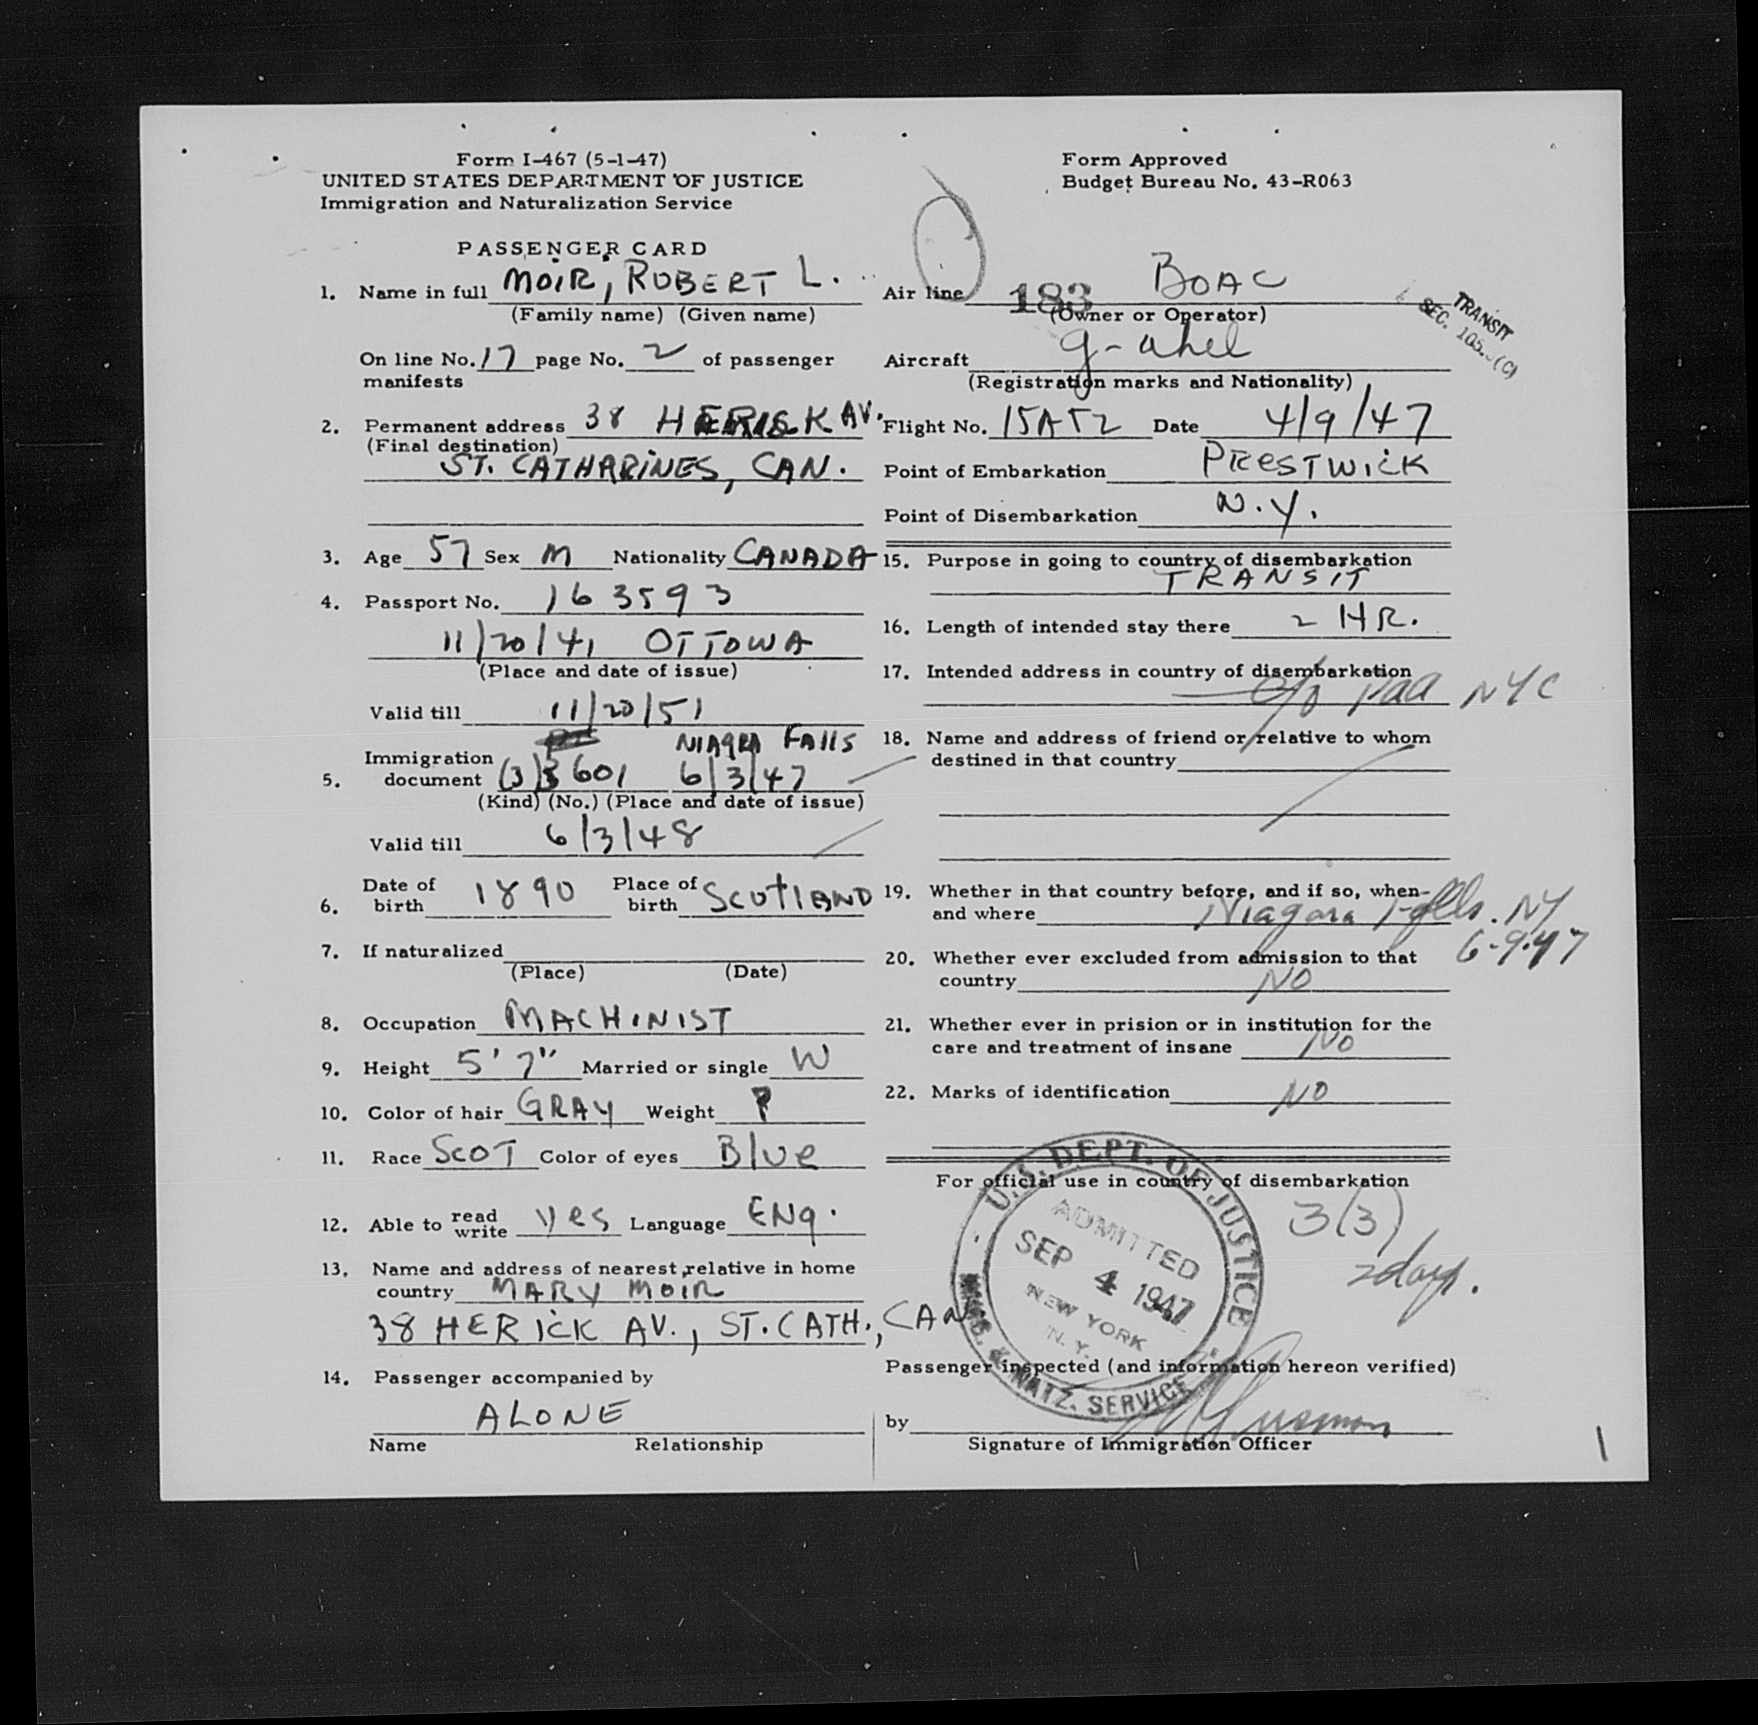 Form I-467 (5-1-47)
UNITED STATES DEPARTMENT OF JUSTICE
Immigration and Naturalization Service
Form Approved
Budget Bureau No. 43-R063
PASSENGER CARD
1. Name in full MOIR, ROBERT L.
(Family name) (Given name)
On line No. 17 page No. 2 of passenger
manifests
2. Permanent address 38 HERICK AV.
(Final destination)
ST. CATHARINES, CAN.
3. Age 57 Sex M Nationality CANADA
4. Passport No. 163593
11/20/41 OTTOWA
(Place and date of issue)
Valid till 11/20/51
NIAGRA FALLS
5. Immigration
document (3) 3 601 6/3/47
(Kind) (No.) (Place and date of issue)
Valid till 6/3/48
6. Date of birth 1890 Place of birth SCOTLAND
7. If naturalized
(Place) (Date)
8. Occupation MACHINIST
9. Height 5' 7" Married or single W
10. Color of hair GRAY Weight ?
11. Race SCOT Color of eyes Blue
12. Able to read write yes Language ENg.
13. Name and address of nearest relative in home
country MARY MOIR
38 HERICK AV., ST. CATH., CAN
14. Passenger accompanied by
ALONE
Name Relationship
Air line 183 BOAC
(Owner or Operator)
TRANSIT
SEC. 105. (C)
Aircraft g-ahel
(Registration marks and Nationality)
Flight No. 15AT2 Date 4/9/47
Point of Embarkation PRESTWICK
Point of Disembarkation N.Y.
15. Purpose in going to country of disembarkation
TRANSIT
16. Length of intended stay there 2 HR.
17. Intended address in country of disembarkation
c/o Paa NYC
18. Name and address of friend or relative to whom
destined in that country
19. Whether in that country before, and if so, when
and where Niagara Falls. NY
6-9-47
20. Whether ever excluded from admission to that
country NO
21. Whether ever in prision or in institution for the
care and treatment of insane NO
22. Marks of identification NO
For official use in country of disembarkation
3(3)
2 days.
U.S. DEPT. OF JUSTICE
ADMITTED
SEP 4 1947
NEW YORK
N. Y.
IMMIG. & NATZ. SERVICE
Passenger inspected (and information hereon verified)
by
Signature of Immigration Officer
1